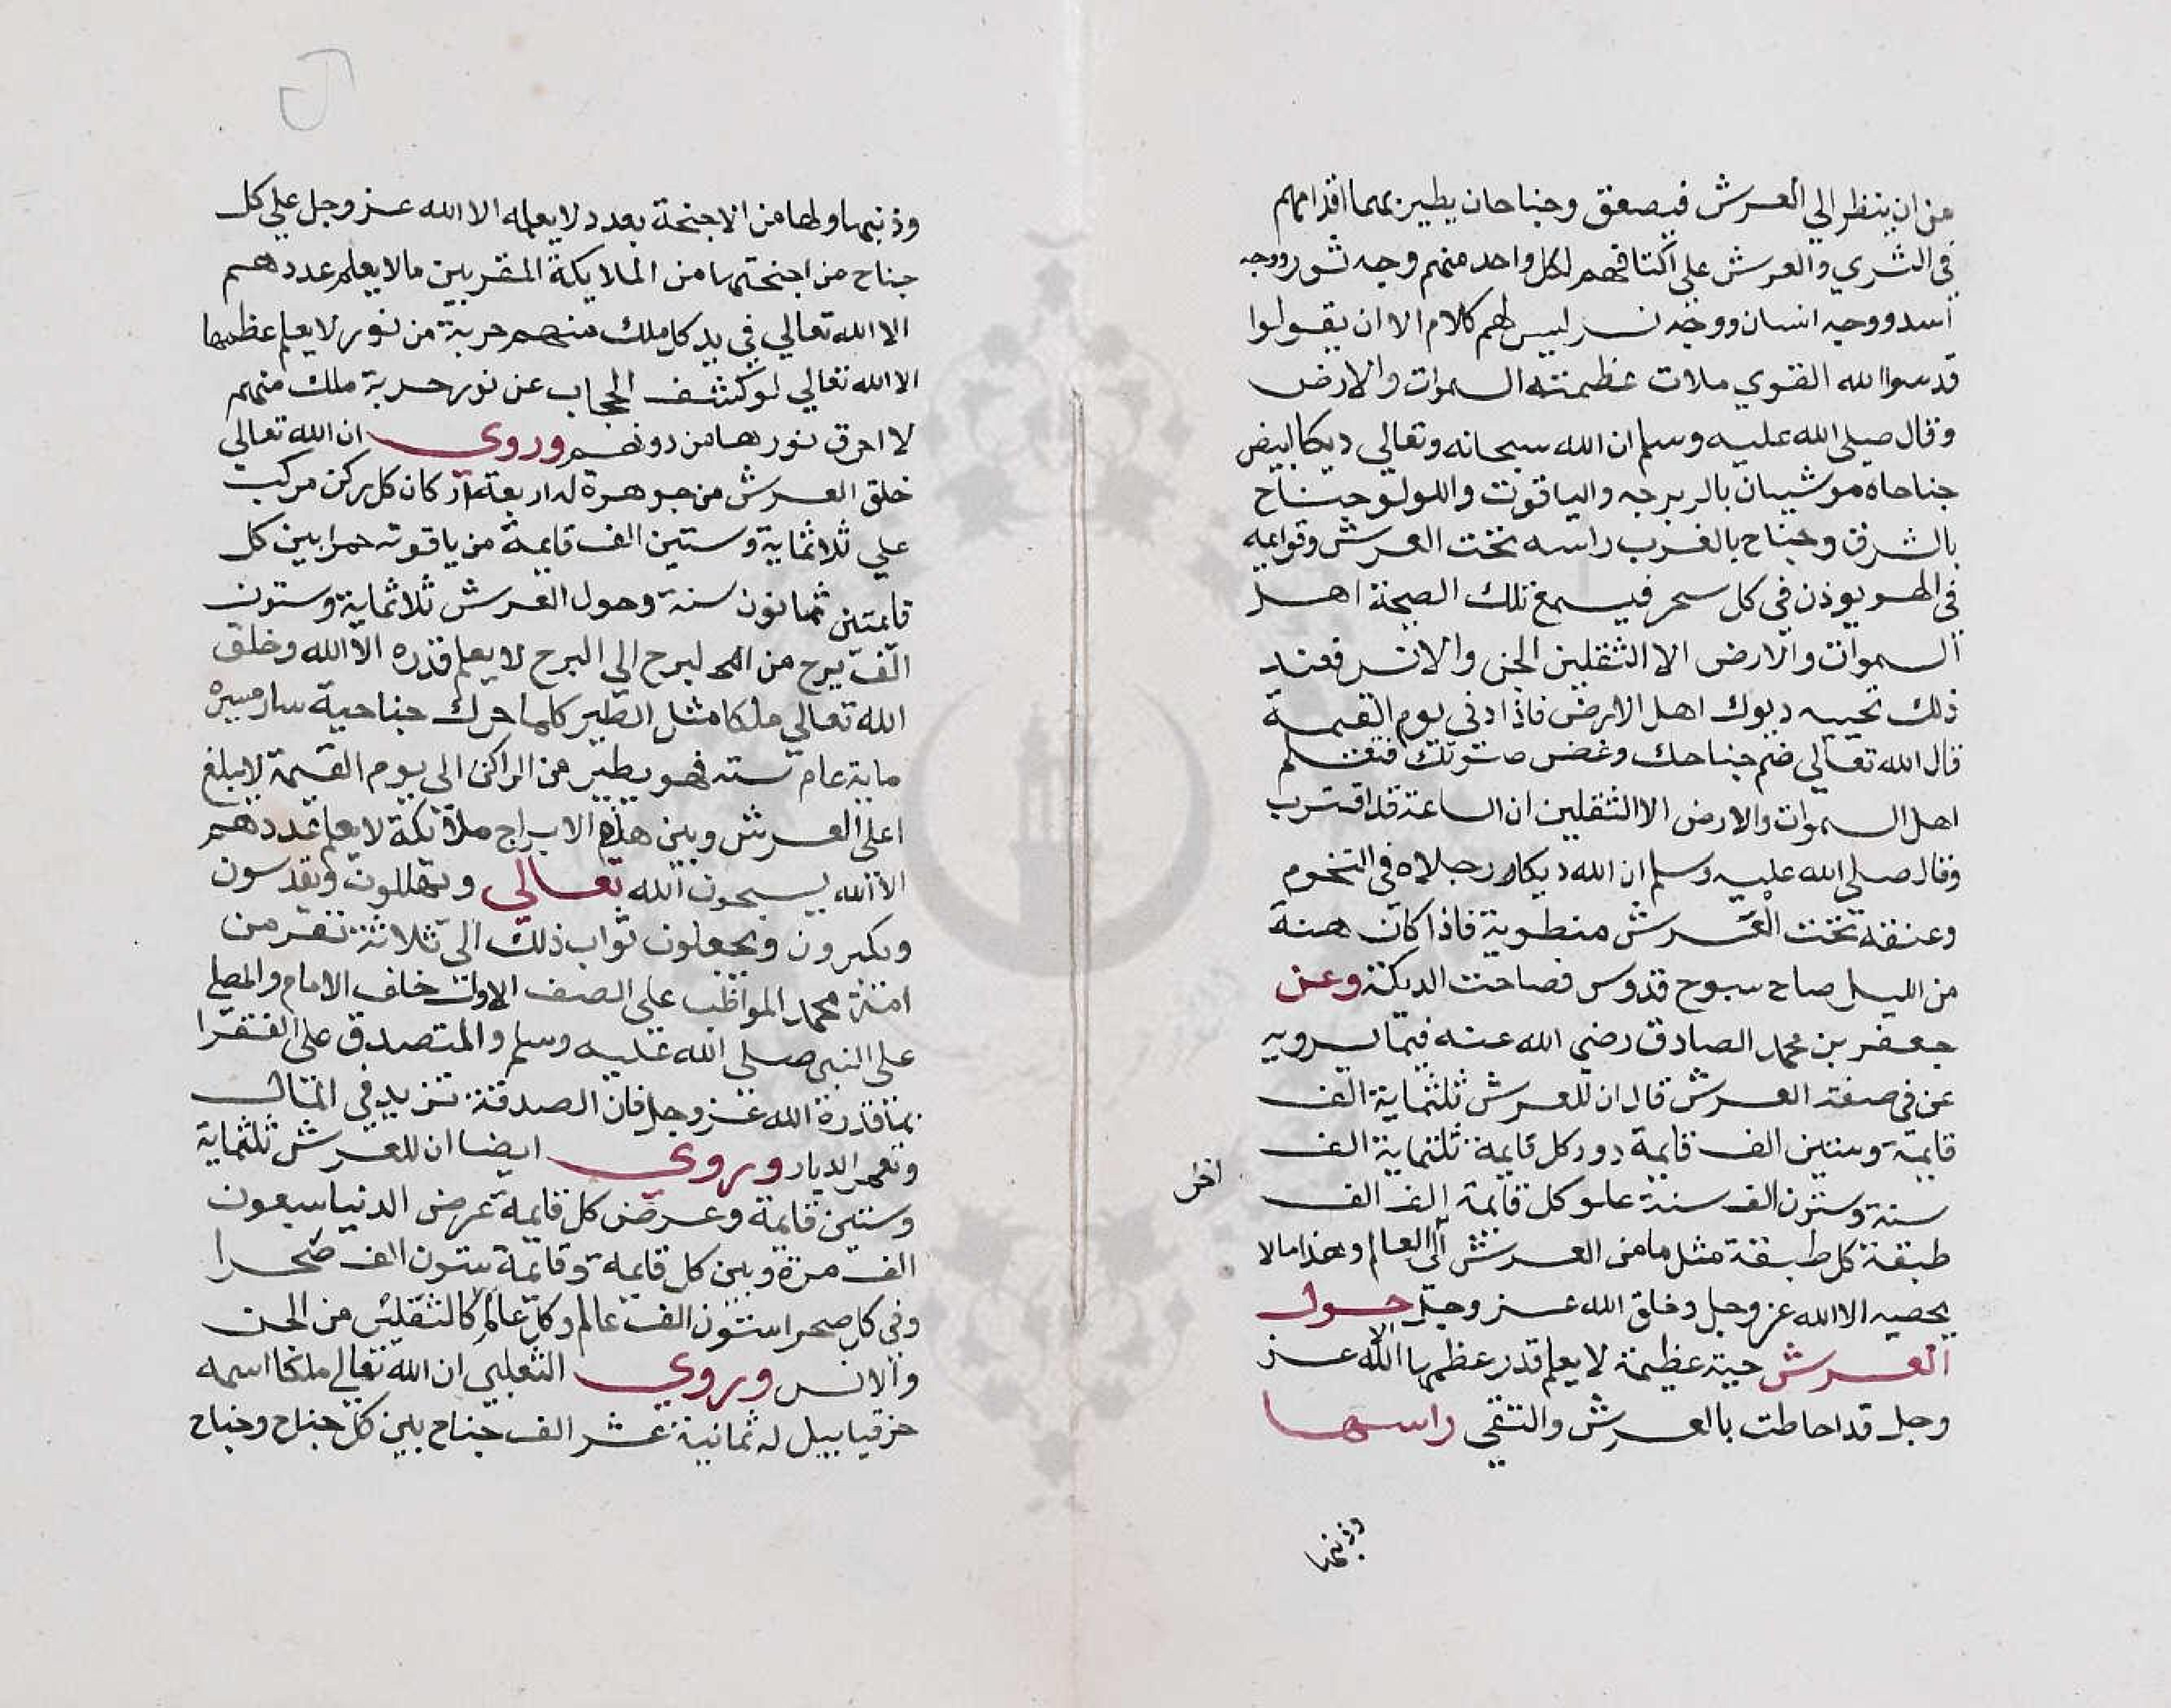 من ان ينظر الي العرش فيصعق وجناحان يطير بهما اقدامهم
في الثري والعرش علي اكتافهم لكل واحد منهم وجه ثور ووجه
اسد ووجه انسان ووجه نسر ليس لهم كلام الا ان يقولوا
قدسوا الله القوي ملات عظمته السموات والارض
وقال صلي الله عليه وسلم ان الله سبحانه وتعالي ديكا ابيض
جناحاه موشيان بالزبرجد والياقوت واللولو جناح
بالشرق وجناح بالغرب راسه تحت العرش وقوايمه
في الهو يوذن في كل سحر فيسمع تلك الصيحة اهل
السموات والارض الا الثقلين الجن والانس فعند
ذلك تجيبه ديوك اهل الارض فاذا دني يوم القيمة
قال الله تعالي ضم جناحك وغض صوتك فتعلم
اهل السموات والارض الا الثقلين ان الساعة قد اقترب
وقال صلي الله عليه وسلم ان الله ديكا رجلاه في التخوم
وعنقه تحت العرش منطوية فاذا كان هنة
من الليل صاح سبوح قدوس فصاحت الديكة وعن
جعفر بن محمد الصادق رضي الله عنه فيما يرويه
عن في صفة العرش قال ان للعرش ثلثماية الف
قايمة وستين الف قايمة دور كل قايمة ثلثماية الف
سنة وستون الف سنة علو كل قايمة الف الف
طبقة كل طبقة مثل ما من العرش الي العالم وهذا ما لا
يحصيه الا الله عز وجل وخلق الله عز وجل حول
العرش حية عظيمة لا يعلم قدر عظمها الا الله عز
وجل قد احاطت بالعرش والتقي راسها
وذنبها
وذنبها ولها من الاجنحة بعدد لا يعلمه الا الله عز وجل علي كل
جناح من اجنحتها من الملايكة المقربين ما لا يعلم عددهم
الا الله تعالي في يد كل ملك منهم حربة من نور لا يعلم عظمها
الا الله تعالي لو كشف الحجاب عن نور حربة ملك منهم
لا احرق نورها من دونهم وروي ان الله تعالي
خلق العرش من جوهرة له اربعة اركان كل ركن مركب
علي ثلاثماية وستين الف قايمة من ياقوته حمرا بين كل
قايمتين ثمانون سنة وحول العرش ثلاثماية وستون
الف برج من البرج الي البرج لا يعلم قدره الا الله وخلق
الله تعالي ملكا مثل الطير كلما حرك جناحية سار مسيرة
ماية عام سنة فهو يطير من الركن الي يوم القيمة لا يبلغ
اعلي العرش وبين هذه الابراج ملائكة لا يعلم عددهم
الا الله يسبحون الله تعالي ويهللون ويقدسون
ويكبرون ويجعلون ثواب ذلك الي ثلاثة نفر من
امة محمد المواظب علي الصف الاول خلف الامام والمصلي
علي النبي صلي الله عليه وسلم والمتصدق علي الفقرا
بما قدرة الله عز وجل فان الصدقة تزيد في المال
وتعمر الديار وروي ايضا ان للعرش ثلثماية
وستين قايمة وعرض كل قايمة عرض الدنيا سبعون
الف مرة وبين كل قايمة وقايمة ستون الف صحرا
وفي كل صحرا ستون الف عالم وكل عالم كالثقلين من الجن
والانس وروي الثعلبي ان الله تعالي ملكا اسمه
حزقياييل له ثمانية عشر الف جناح بين كل جناح وجناح